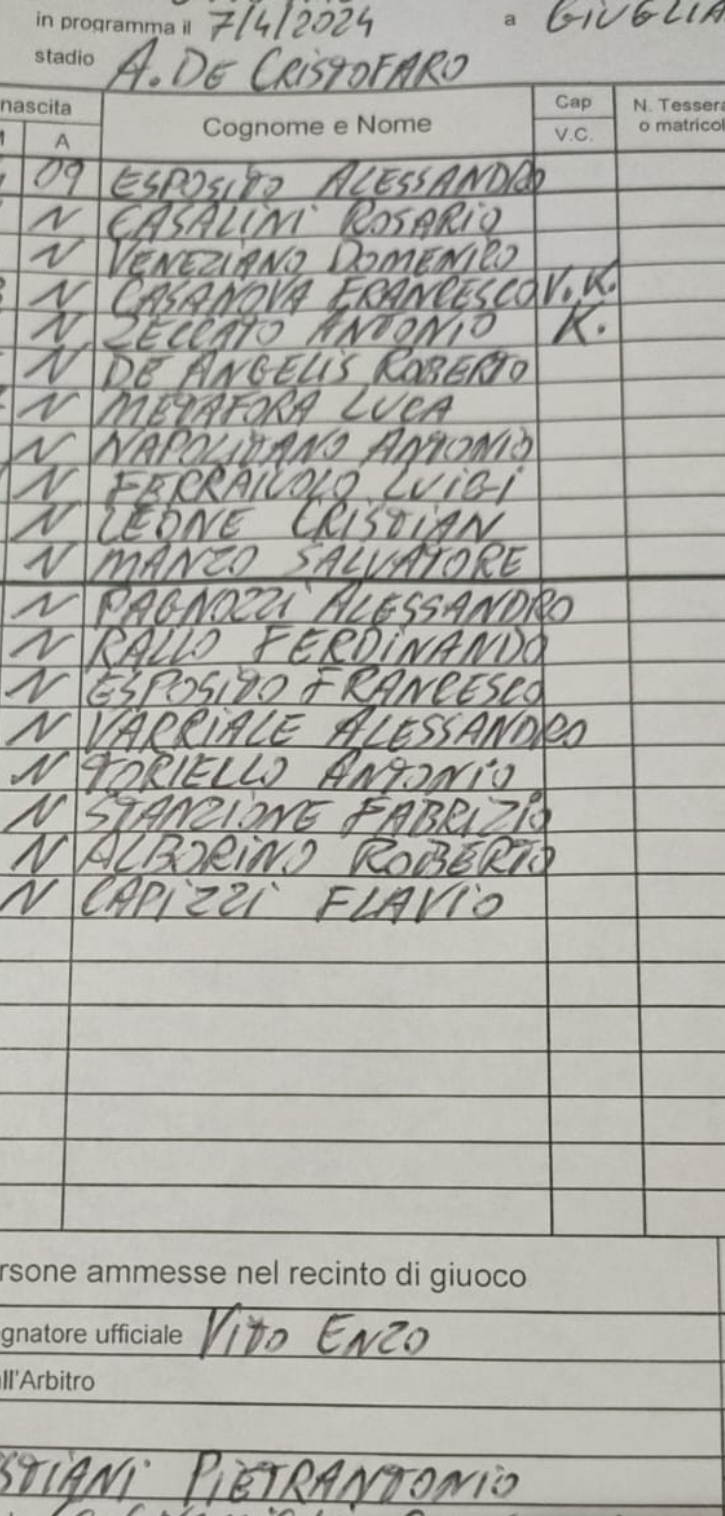 in programma il 7/4/2024 a GIUGLIA
stadio A. DE CRISTOFARO
nascita Cognome e Nome Cap N. Tessera
A V.C. o matricol
09 ESPOSITO ALESSANDRO
N CASALINI ROSARIO
N VENEZIANO DOMENICO
N CASANOVA FRANCESCO V.K.
N ZECCATO ANTONIO K.
N DE ANGELIS ROBERTO
N METAFORA LUCA
N NAPOLITANO ANTONIO
N FERRAIUOLO LUIGI
N LEONE CRISTIAN
N MANZO SALVATORE
N PAGNOZZI ALESSANDRO
N RALLO FERDINANDO
N ESPOSITO FRANCESCO
N VARRIALE ALESSANDRO
N TORIELLO ANTONIO
N STANZIONE FABRIZIO
N ALBORINO ROBERTO
N CAPIZZI FLAVIO
rsone ammesse nel recinto di giuoco
gnatore ufficiale VITO ENZO
ll'Arbitro
STIANI PIETRANTONIO